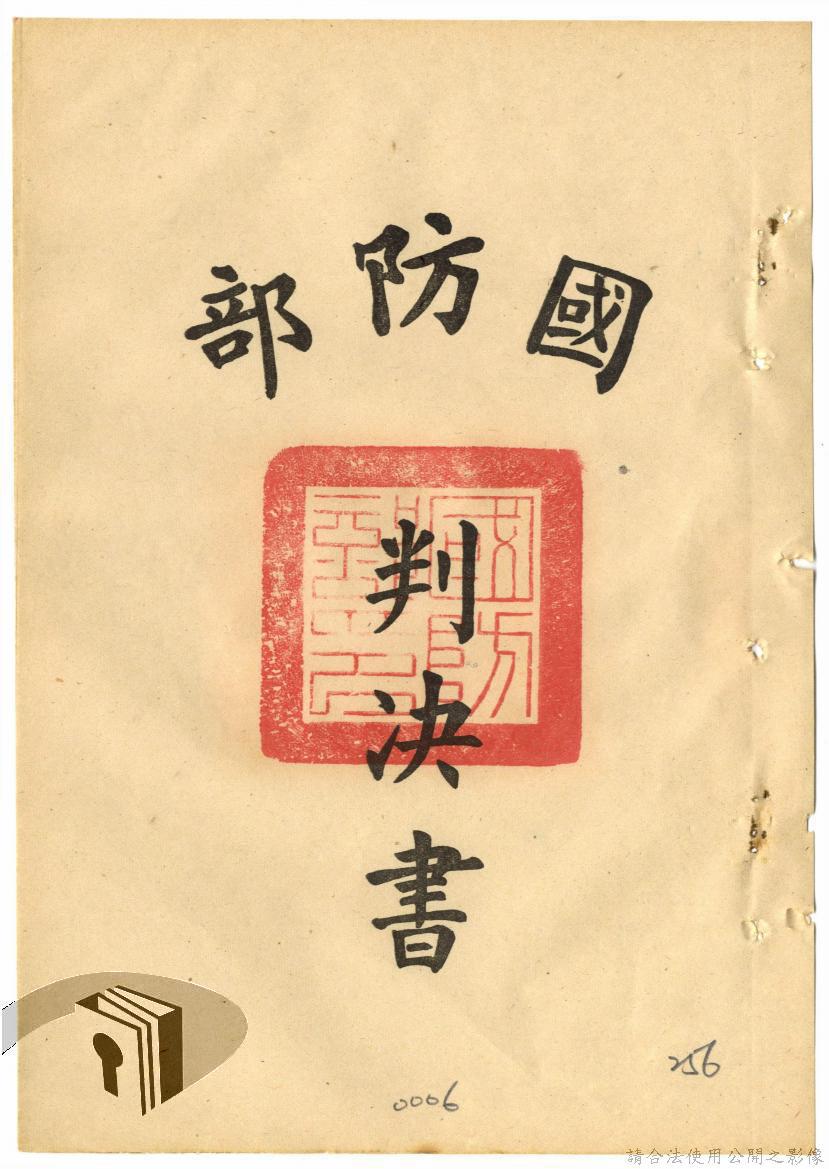 國防部
判決書
國防部印
0006
256
請合法使用公開之影像